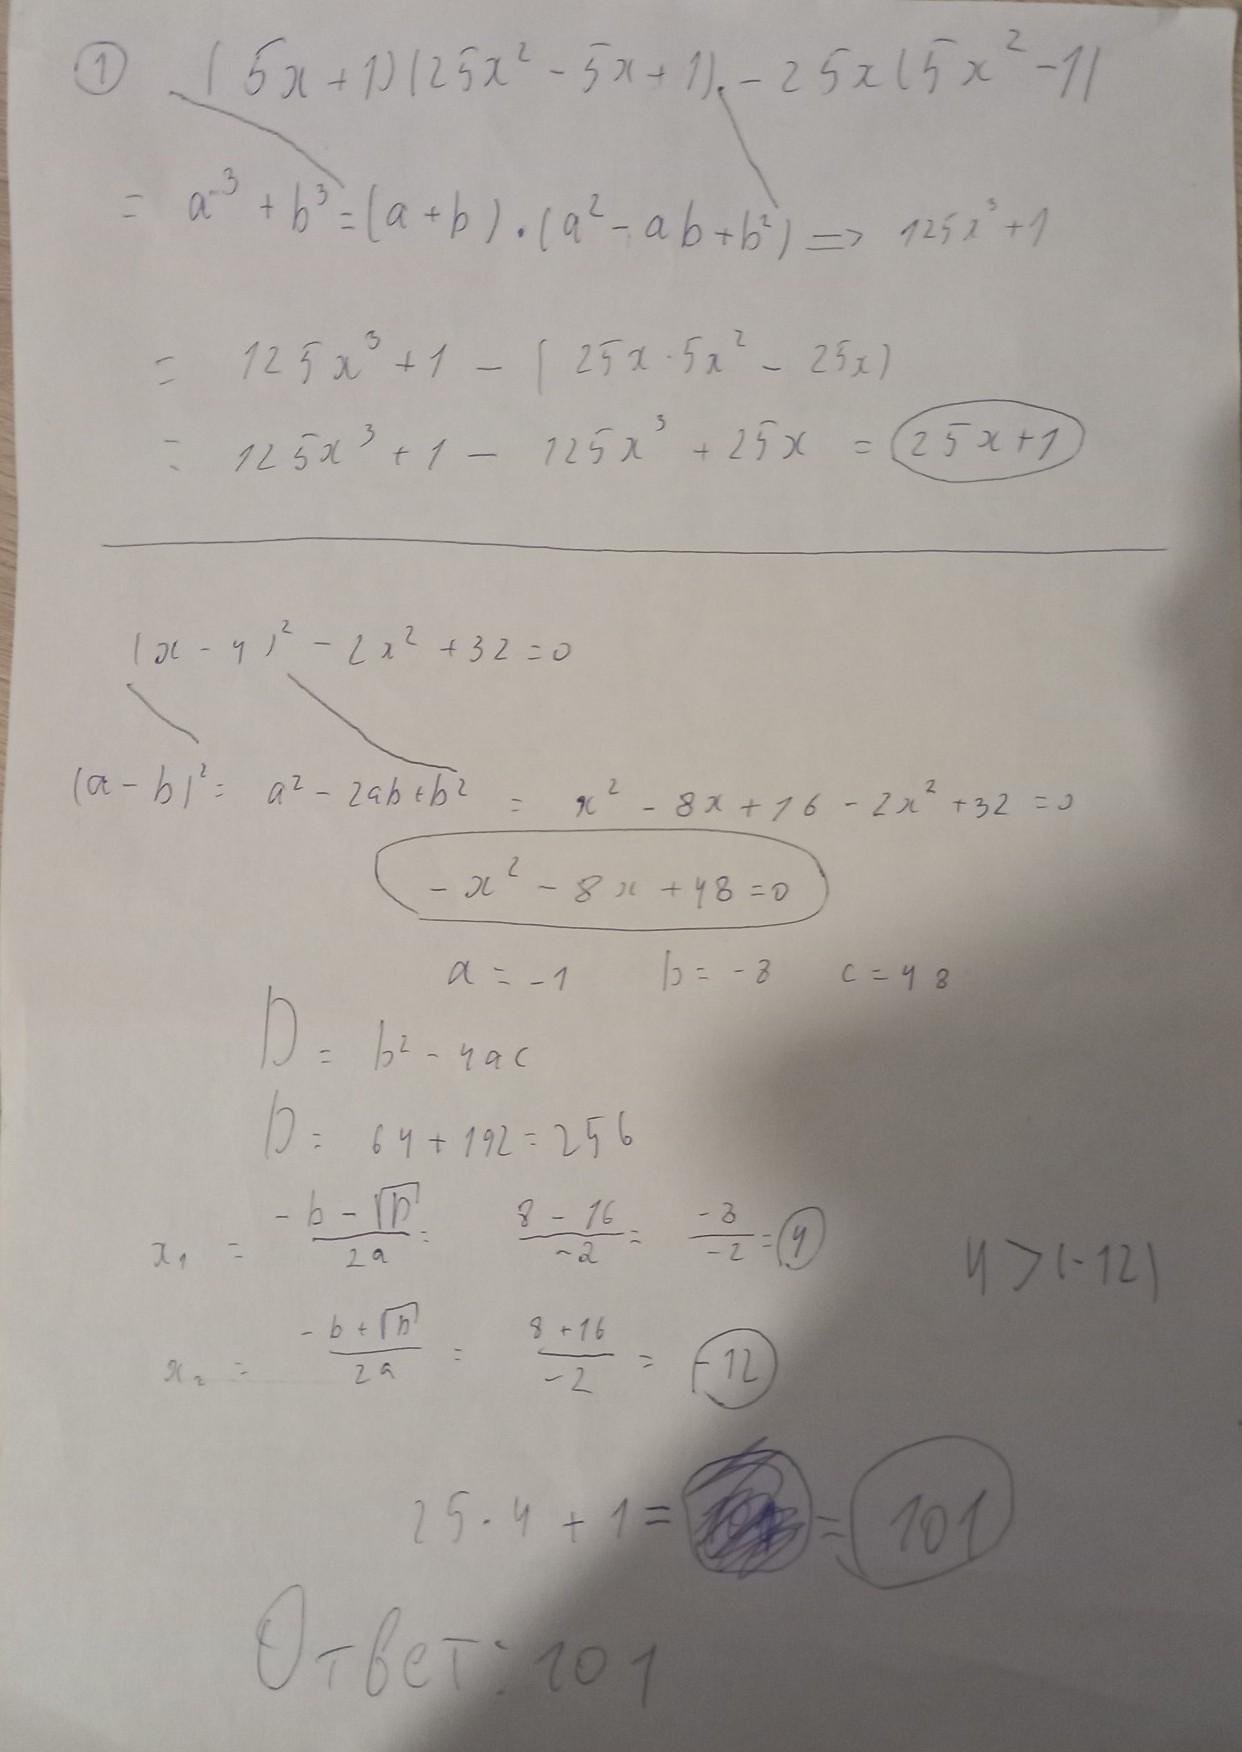 ① (5x+1)(25x² - 5x+1). - 25x(5x² -1)
= a³ + b³ = (a+b).(a² - ab+b²) => 125x³+1
= 125x³ +1 - (25x·5x² - 25x)
= 125x³ +1 - 125x³ +25x = 25x+1
(x-4)² - 2x² +32=0
(a-b)² = a² - 2ab+b² = x² - 8x+16 - 2x² +32 =0
-x² - 8x +48=0
a = -1 b = -8 c = 48
D = b² - 4ac
D = 64+192=256
x₁ = (-b - √D)/(2a) = (8 - 16)/(-2) = (-8)/(-2) = 4 4 > (-12)
x₂ = (-b+√D)/(2a) = (8+16)/(-2) = -12
25·4 + 1 = = 101
Ответ: 101